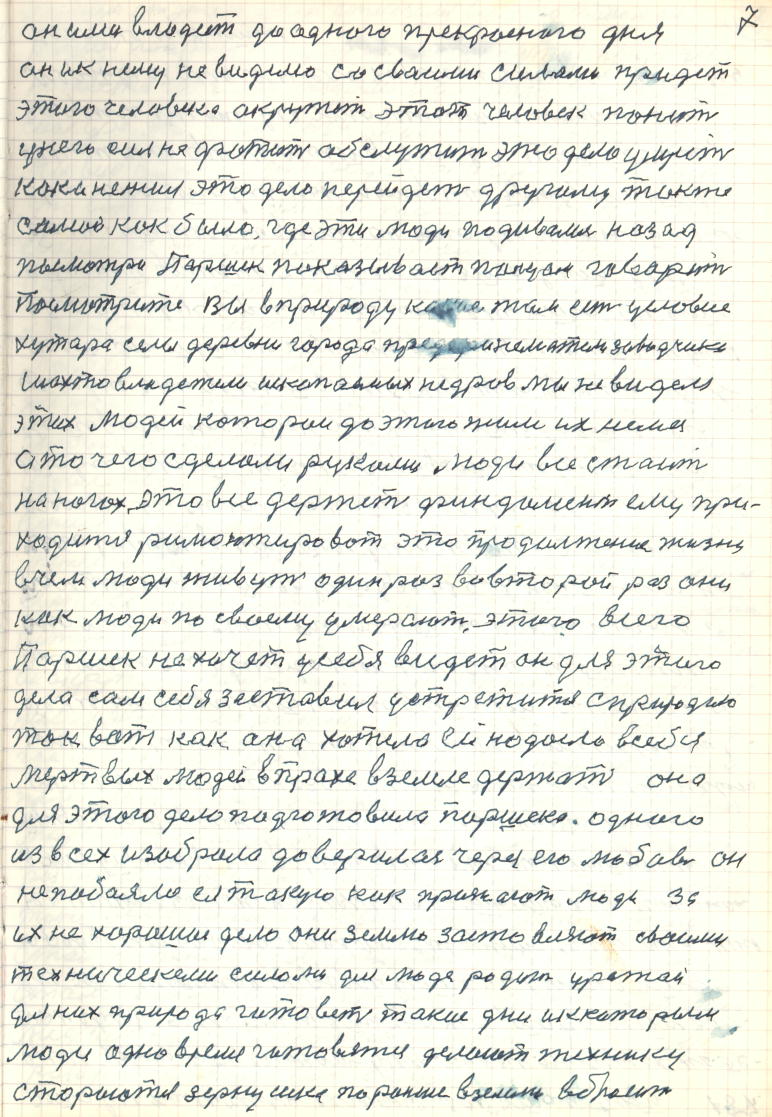 7
он ими владеет до одного прекрасного дня
он к нему не видемо со сваими силами придет
этого человека окружит этот человек
у него сил не фатит обслужит это дело умрет
как и не жил это дело перейдет другому так же
самое как было, где эти люди подивалися назад
посмотри Паршек показывает пальцем говарит
Посмотрите вы в природу какие там ест условие
хутара села деревни города заводчики
шахто владетели ископаемых недров мы не видели
этих людей котории до этого жили их нема
а то чего сделали руками люди все стаит
на ногах, это все держет финдамент ему при-
ходится римонтироват это продолжение жизни
в чем люди живут один раз во второй раз они
как люди по своему умерают, этого всего
Паршек не хочет у себя видет он для этого
дела сам себя заставил устретится с природаю
так вот как она хотела ей надоело в себя
мертвых людей в прахе в земле держат она
для этого дело подготовила паршека. одного
из всех изобрала доверилася через его любов он
непобаялся такую как признают люди за
их не хорошое дело они землю заставляют своими
техническеми силоми для людя родит урожай
для них природа готовет такие дни к каторым
люди одно время готовятся делают технику
стораются зернушка пораньше в землю вбросит